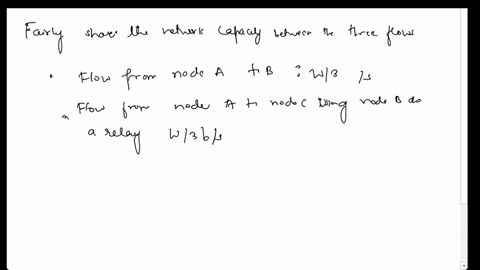 Fairly share the network capacity between the three flows
• Flow from node A to B : W/3 /s
• Flow from node A to node C using node B as
a relay W/3 b/s